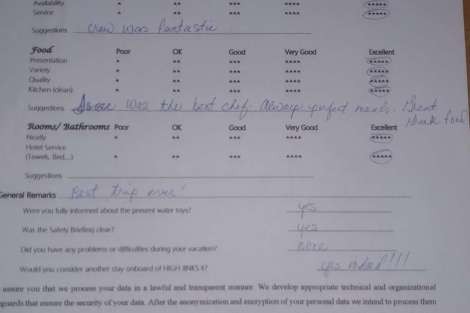 Availability * ** *** **** *****
Service * ** *** **** *****
Suggestions crew was fantastic
Food Poor OK Good Very Good Excellent
Presentation * ** *** **** *****
Variety * ** *** **** *****
Quality * ** *** **** *****
Kitchen (clean) * ** *** **** *****
Suggestions was the best chef. Always perfect meals. Great
food
Rooms/ Bathrooms Poor OK Good Very Good Excellent
Neatly * ** *** **** *****
Hotel Service
(Towels, Bed...) * ** *** **** *****
Suggestions
General Remarks Best trip ever!
Were you fully informed about the present water toys? yes
Was the Safety Briefing clear? yes
Did you have any problems or difficulties during your vacation? none
Would you consider another stay onboard of HIGH JINKS II? yes indeed!!!
assure you that we process your data in a lawful and transparent manner. We develop appropriate technical and organizational
guards that ensure the security of your data. After the anonymization and encryption of your personal data we intend to process them